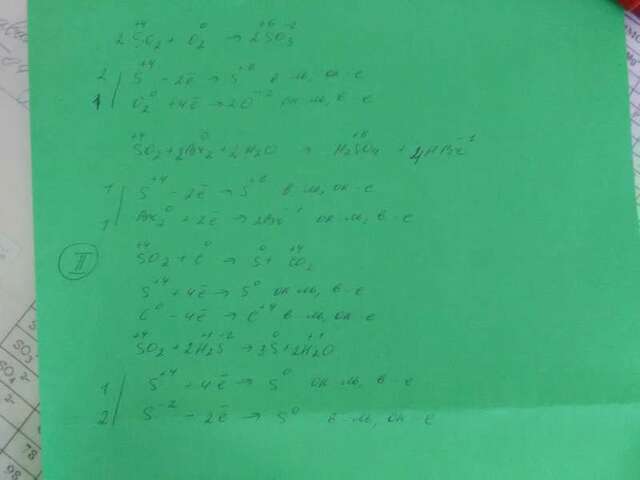 +4 0 +6 -2
2SO2 + O2 → 2SO3
2 | S+4 - 2ē → S+6 в-ль, ок-е
1 | O2 0 + 4ē → 2O-2 ок-ль, в-е
+4 0 +6 -1
SO2 + 2Br2 + 2H2O → H2SO4 + 4HBr
1 | S+4 - 2ē → S+6 в-ль, ок-е
1 | Br2 0 + 2ē → 2Br-1 ок-ль, в-е
II
+4 0 0 +4
SO2 + C → S + CO2
S+4 + 4ē → S0 ок-ль, в-е
C0 - 4ē → C+4 в-ль, ок-е
+4 +1 -2 0 +1
SO2 + 2H2S → 3S + 2H2O
1 | S+4 + 4ē → S0 ок-ль, в-е
2 | S-2 - 2ē → S0 в-ль, ок-е
SO3
2
78
98